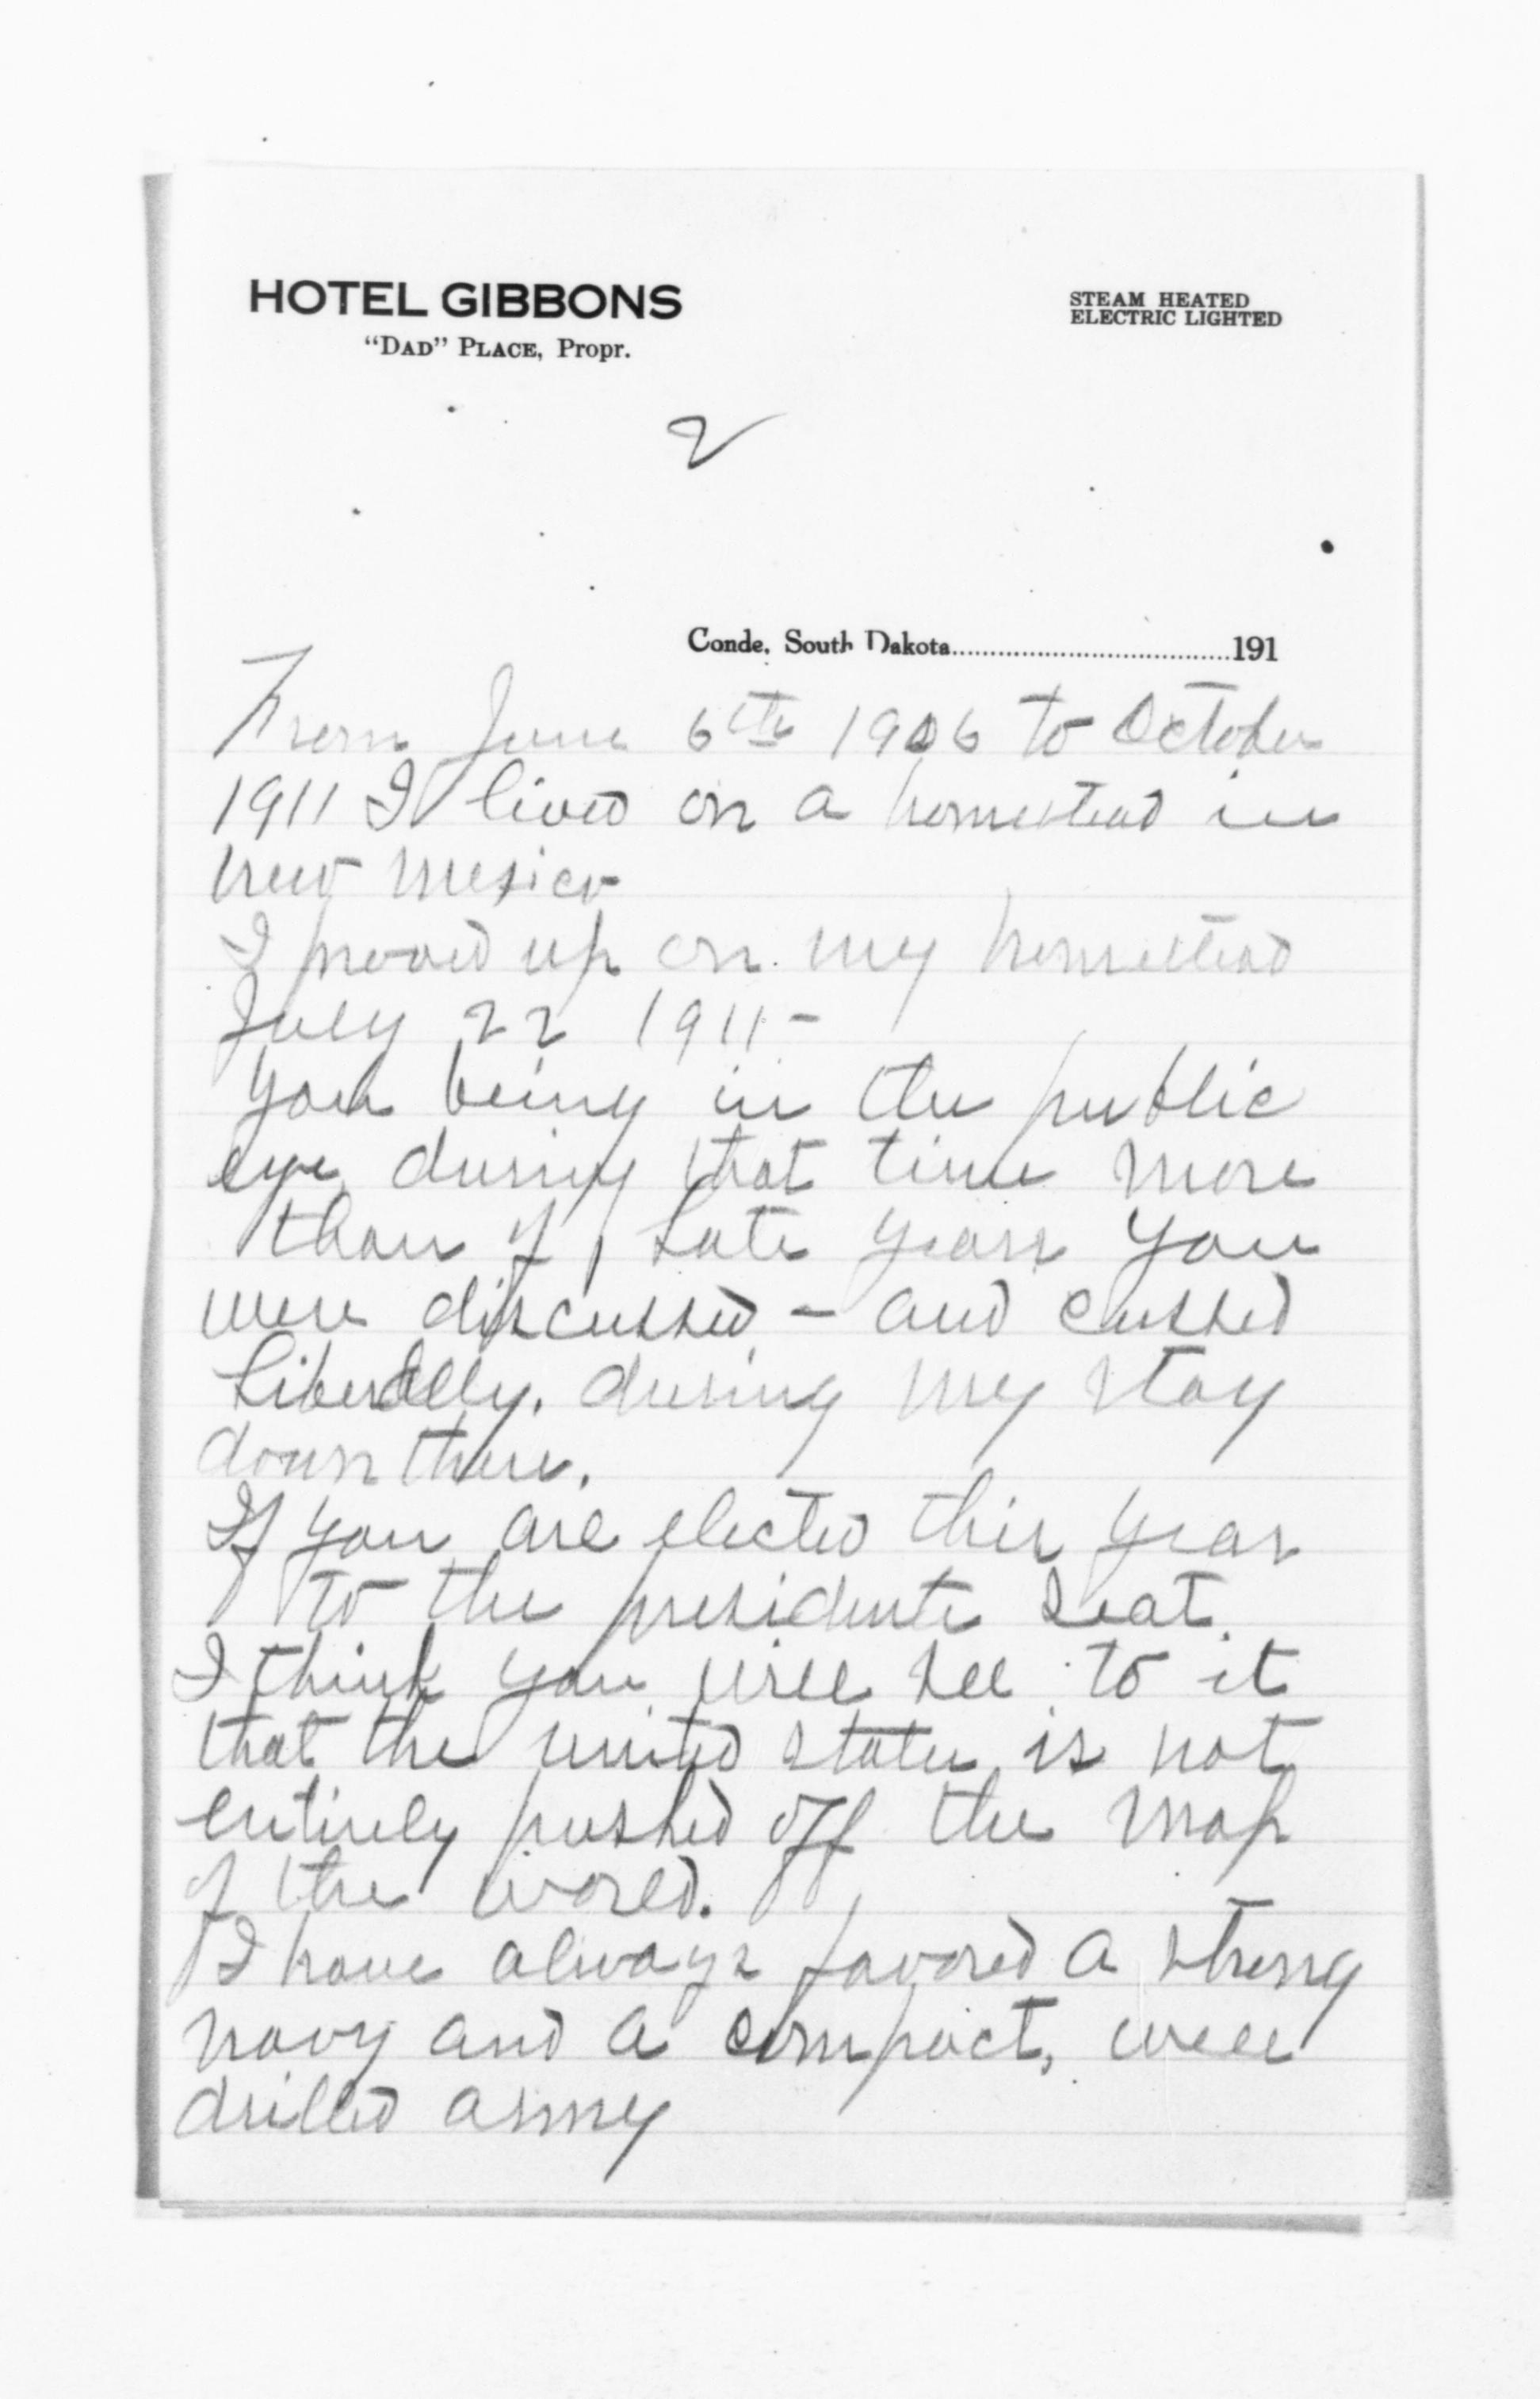 HOTEL GIBBONS
"DAD" PLACE, Propr.
STEAM HEATED
ELECTRIC LIGHTED
2
Conde, South Dakota 191
From June 6th 1906 to October
1911 I lived on a homestead in
new mexico
I proved up on my homestead
July 22 1911-
you being in the public
eye during that time more
than of late years you
were discussed - and cussed
liberally. during my stay
down there.
If you are elected this year
to the presidents seat.
I think you will see to it
that the united states is not
entirely pushed off the map
of the world.
I have always favored a strong
navy and a compact, well
drilled army